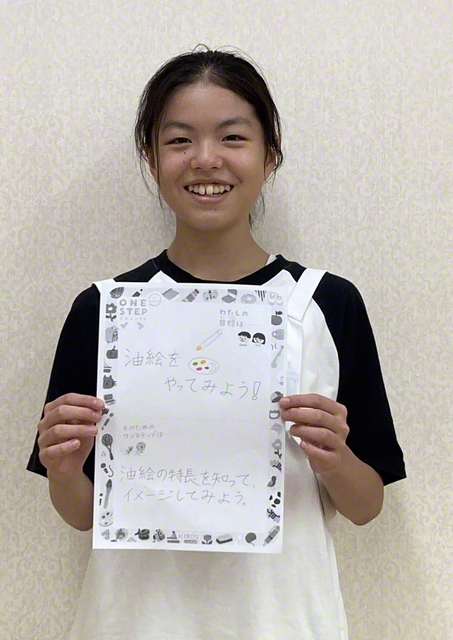 ONE
STEP
わたしの
目標は
油絵を
やってみよう!
そのための
ワンステップは
油絵の特長を知って、
イメージしてみよう。